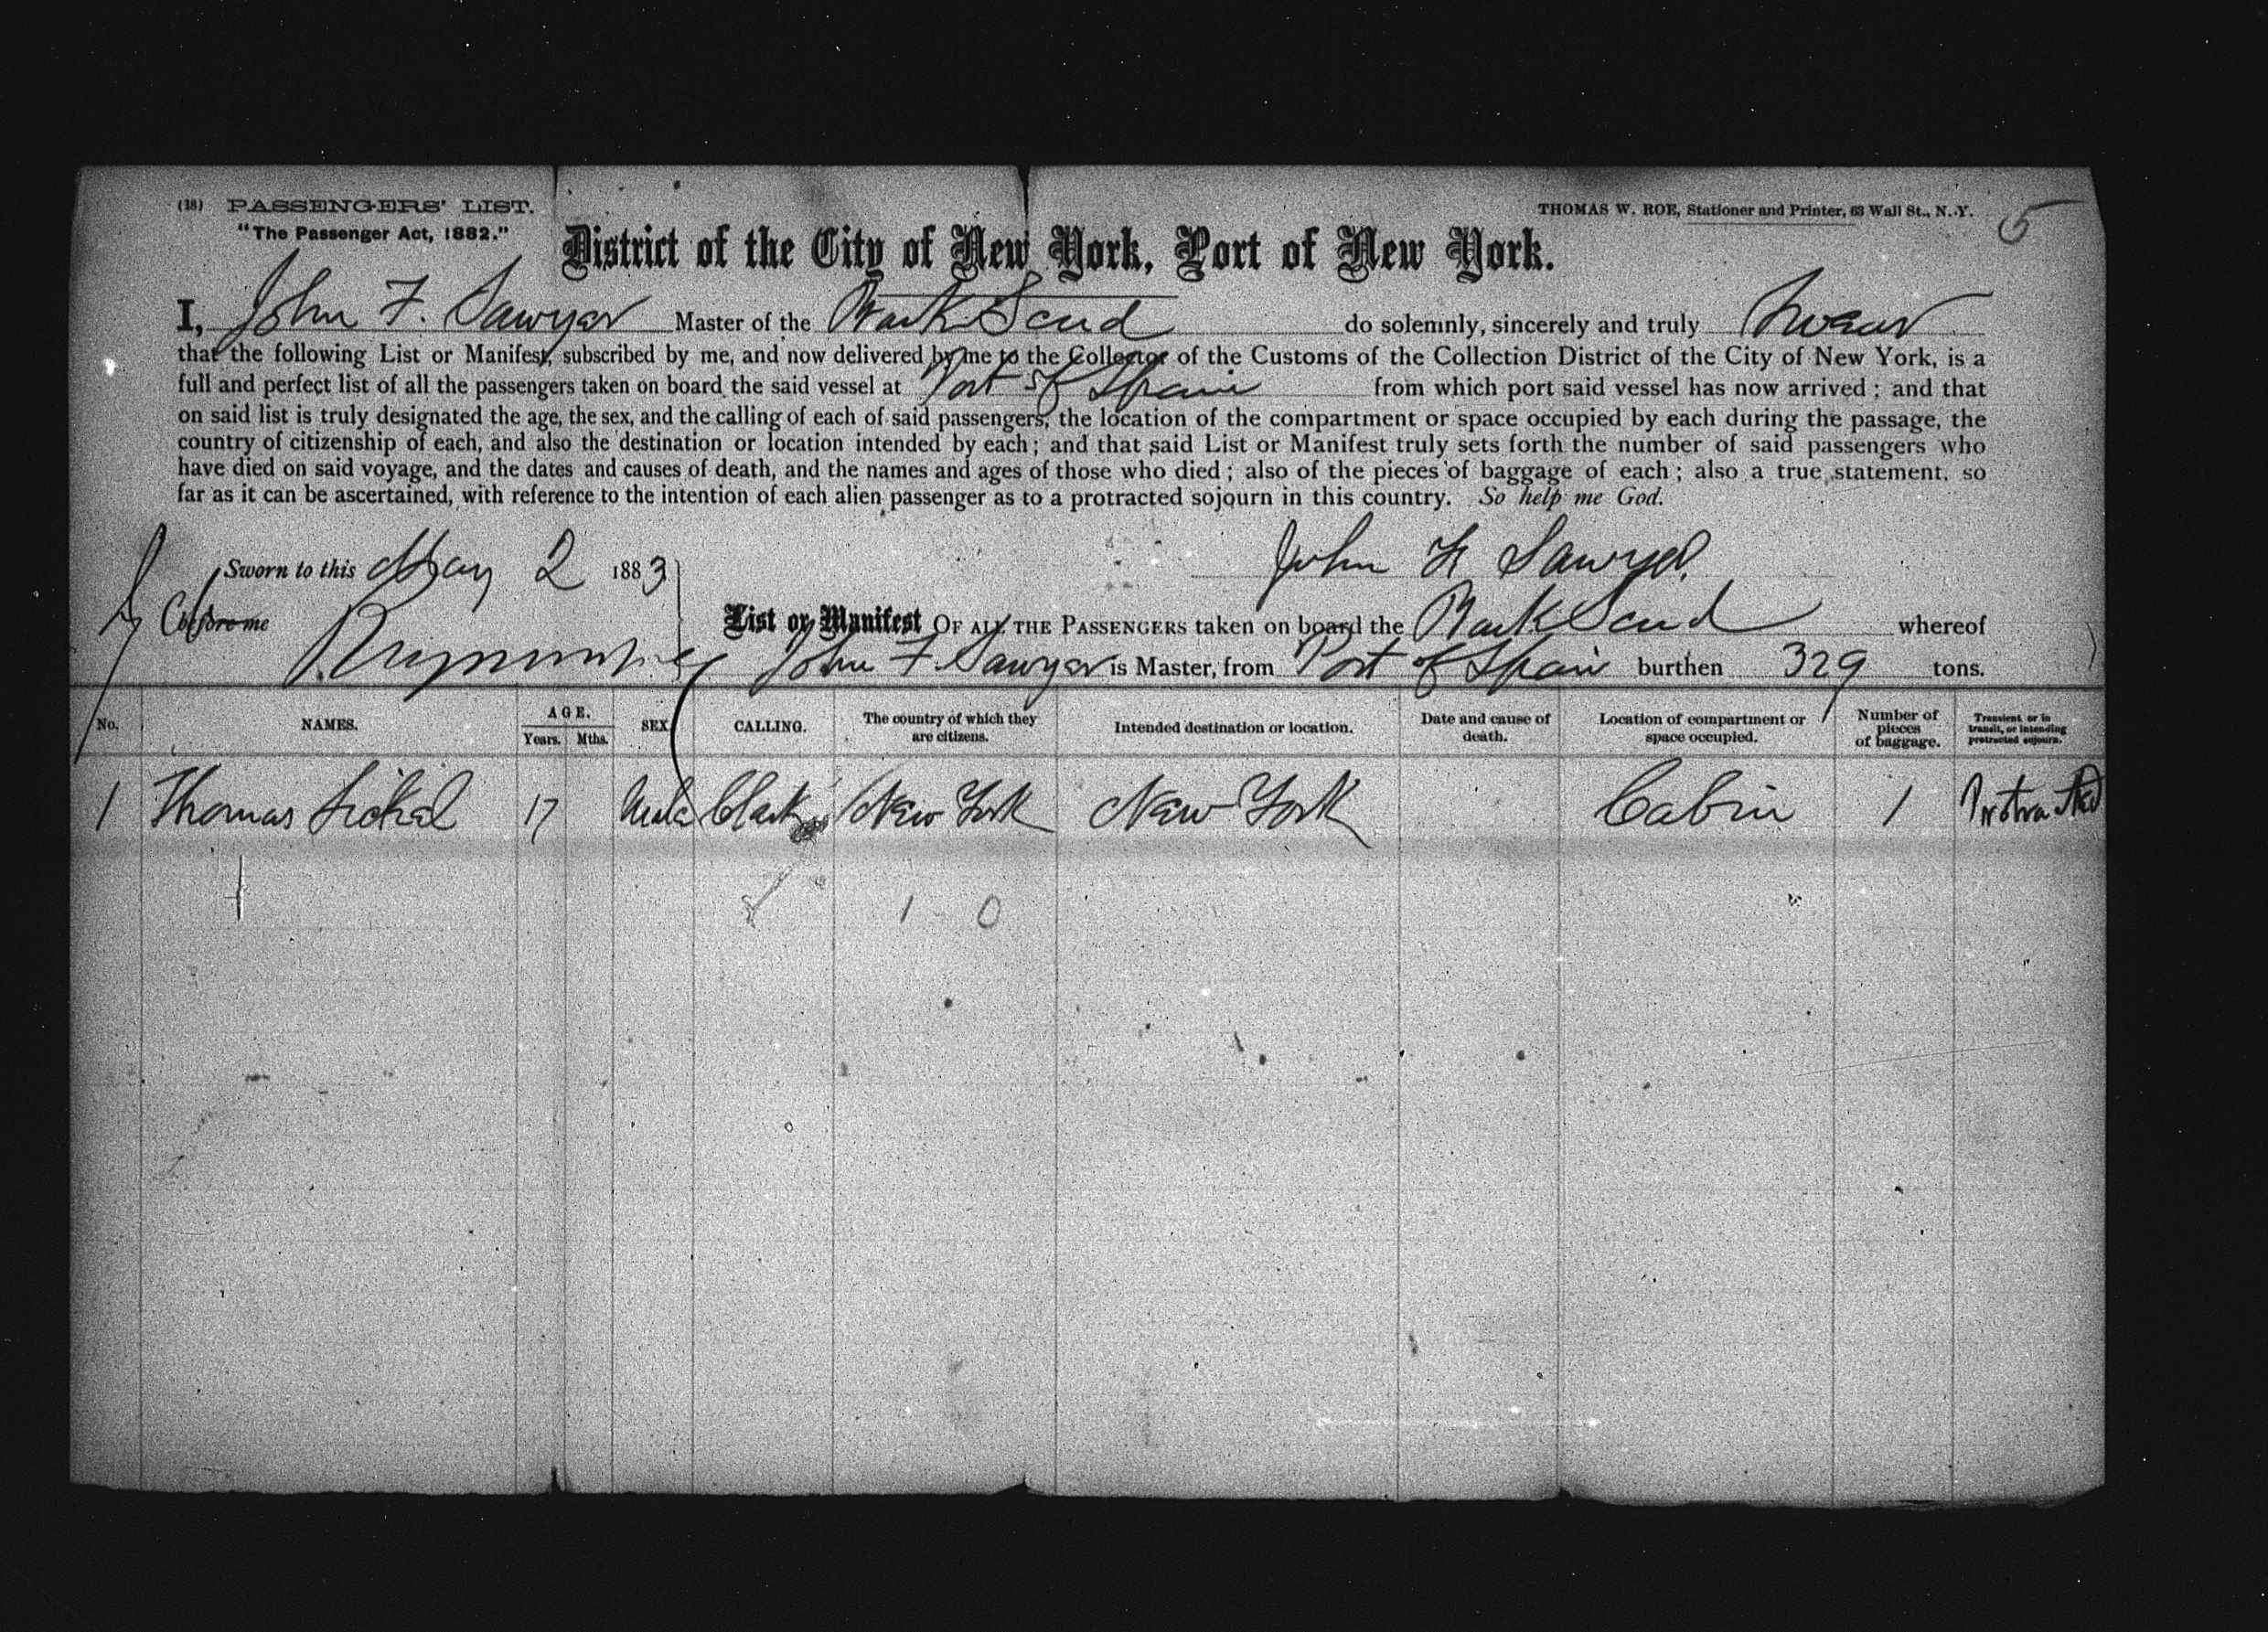 (18) PASSENGERS' LIST.
"The Passenger Act, 1882."
THOMAS W. ROE, Stationer and Printer, 63 Wall St., N. Y.
5
District of the City of New York, Port of New York.
I, John F. Sawyer Master of the Bark Scud do solemnly, sincerely and truly swear
that the following List or Manifest, subscribed by me, and now delivered by me to the Collector of the Customs of the Collection District of the City of New York, is a
full and perfect list of all the passengers taken on board the said vessel at Port of Spain from which port said vessel has now arrived; and that
on said list is truly designated the age, the sex, and the calling of each of said passengers, the location of the compartment or space occupied by each during the passage, the
country of citizenship of each, and also the destination or location intended by each; and that said List or Manifest truly sets forth the number of said passengers who
have died on said voyage, and the dates and causes of death, and the names and ages of those who died; also of the pieces of baggage of each; also a true statement, so
far as it can be ascertained, with reference to the intention of each alien passenger as to a protracted sojourn in this country. So help me God.
Sworn to this May 2 1883
John F Sawyer
before me
List or Manifest OF ALL THE PASSENGERS taken on board the Bark Scud whereof
John F. Sawyer is Master, from Port of Spain burthen 329 tons.
No. NAMES. AGE. Years. Mths. SEX CALLING. The country of which they are citizens. Intended destination or location. Date and cause of death. Location of compartment or space occupied. Number of pieces of baggage. Transient or in transit, or intending protracted sojourn.
1 Thomas 17 Male Clark New York New York Cabin 1 Protracted
1 0